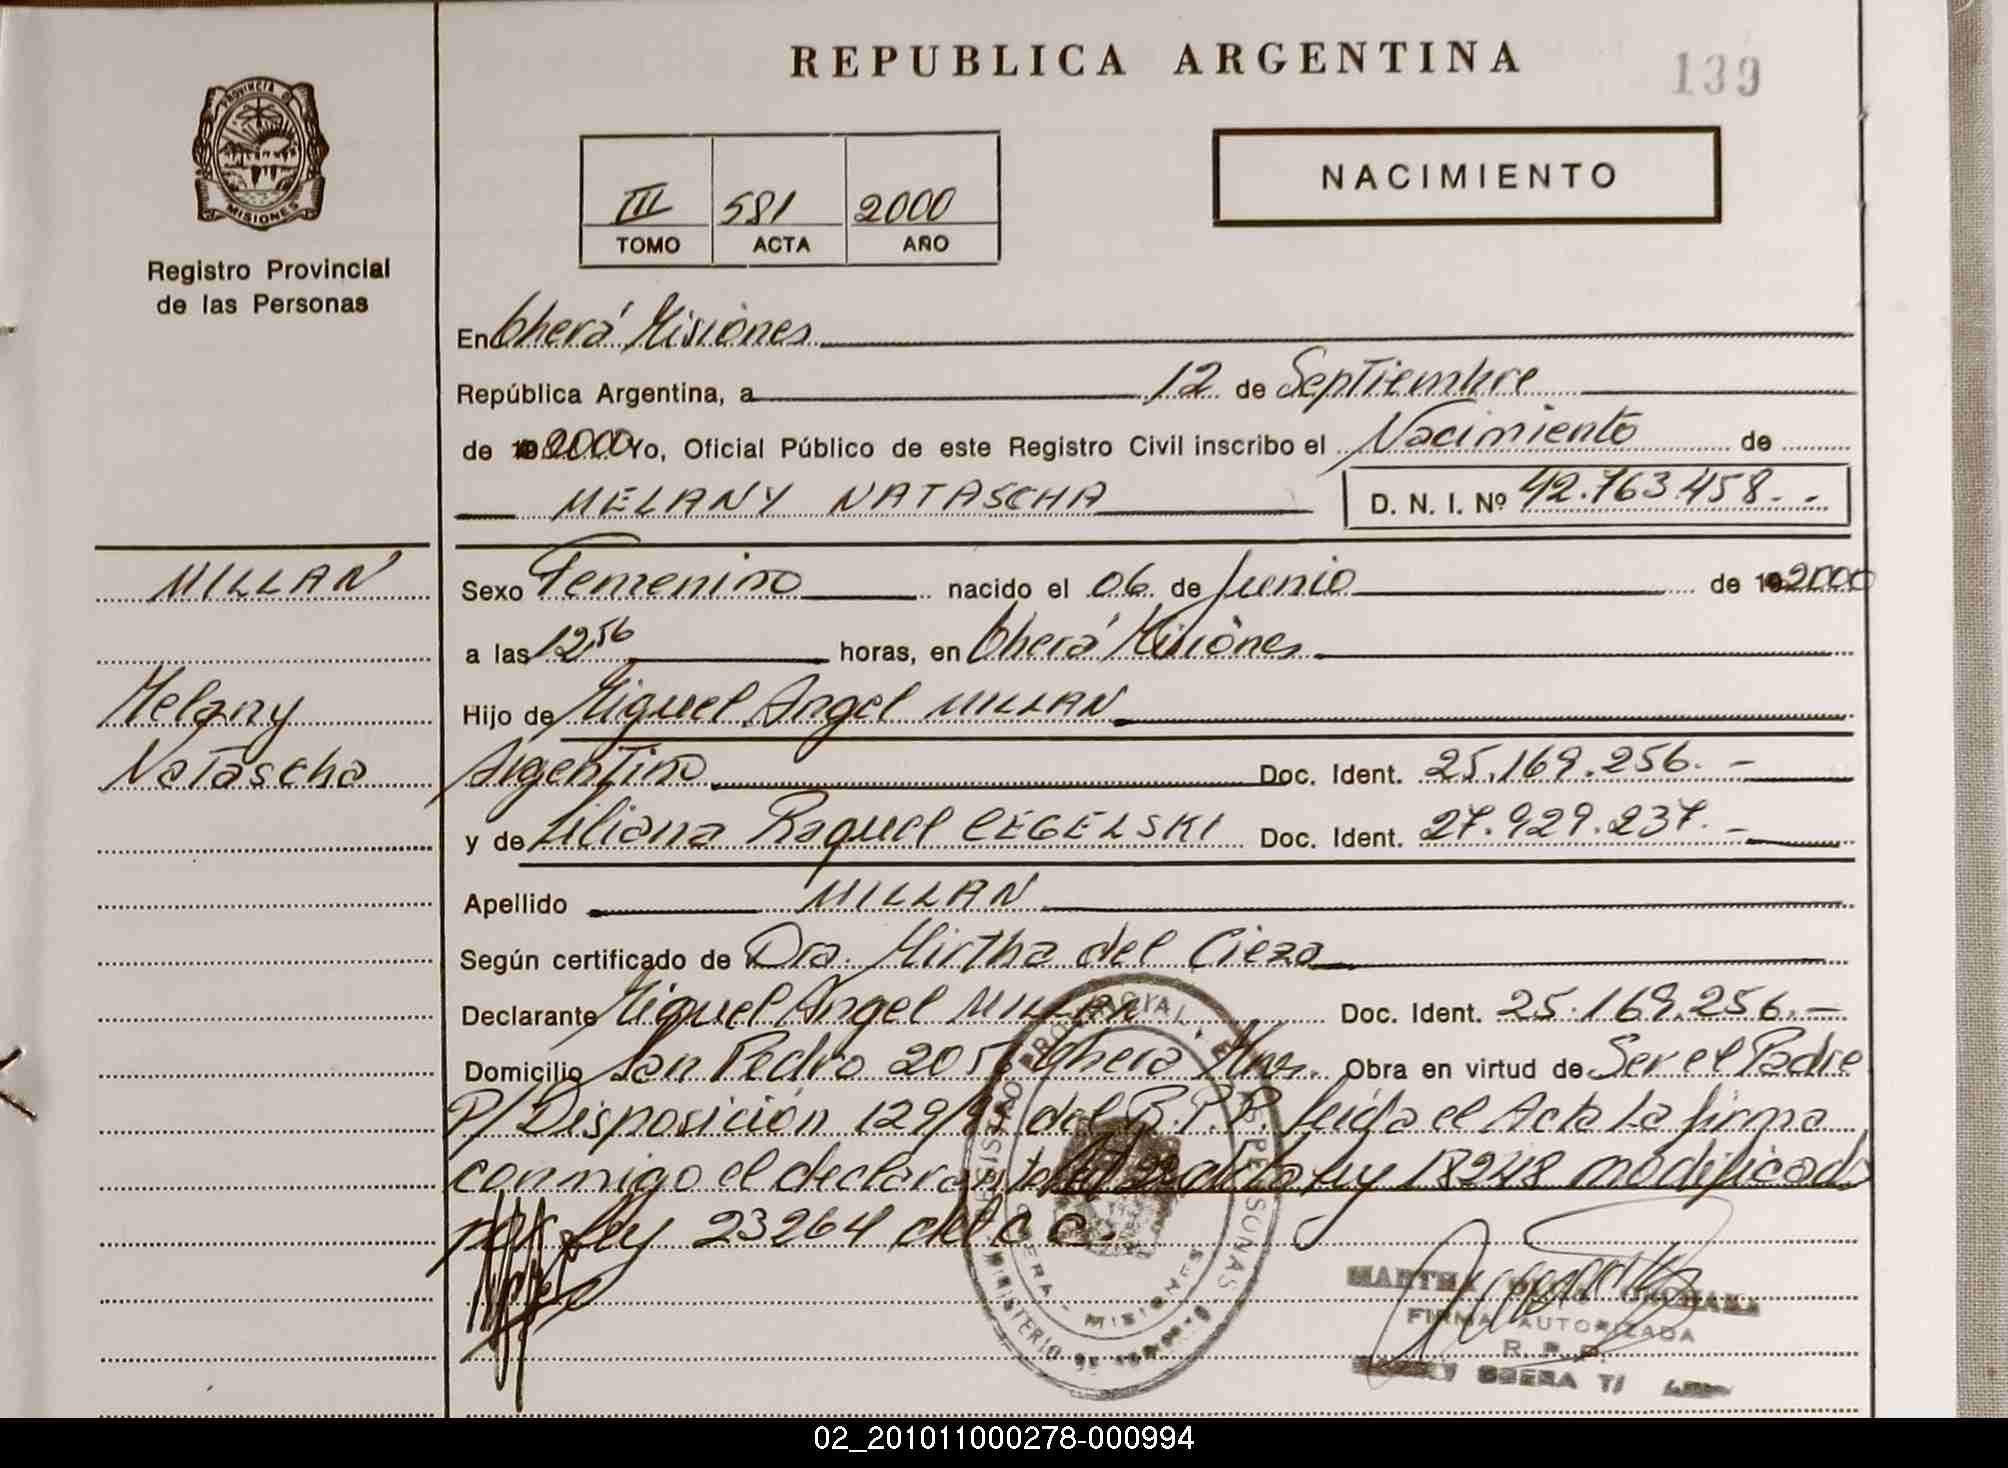 REPUBLICA ARGENTINA
139
PROVINCIA DE
MISIONES
Registro Provincial
de las Personas
III 581 2000
TOMO ACTA AÑO
NACIMIENTO
En Oberá Misiones
República Argentina, a 12 de Septiembre
de 19 2000 Yo, Oficial Público de este Registro Civil inscribo el Nacimiento de
MELANY NATASCHA D. N. I. Nº 42.763.458.-
MILLAN
Melany
Natascha
Sexo Femenino nacido el 06 de Junio de 19 2000
a las 12,56 horas, en Oberá Misiones
Hijo de Miguel Angel MILLAN
Argentino Doc. Ident. 25.169.256.-
y de Liliana Raquel CEGELSKI Doc. Ident. 27.929.237.-
Apellido MILLAN
Según certificado de Dra. Mirtha del Cieza
Declarante Miguel Angel MILLAN Doc. Ident. 25.169.256.-
Domicilio San Pedro 2056 Oberá Mnes. Obra en virtud de Ser el Padre
P/ Disposición 129/ del R.P.P. Leída el Acta La firma
conmigo el declarante ley 18248 modificado
por ley 23264 del C C.
REGISTRO PROVINCIAL DE LAS PERSONAS
MINISTERIO DE GOBIERNO
OBERA - MISIONES
MARTHA
FIRMA AUTORIZADA
R. P. P.
OBERA
02_201011000278-000994